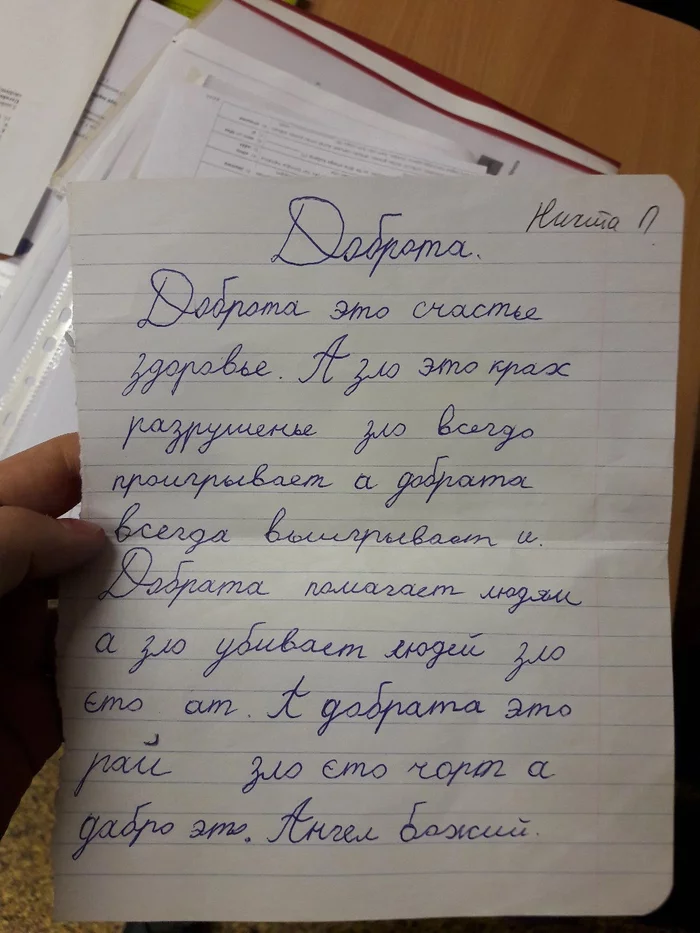 Никита П
Доброта.
Доброта это счастье
здоровье. А зло это крах
разрушенье зло всегдо
проигрывает а добрата
всегда выигрывает и.
Добрата помагает людям
а зло убивает людей зло
єто ат. А добрата это
рай зло єто чорт а
дабро это. Ангел божий.